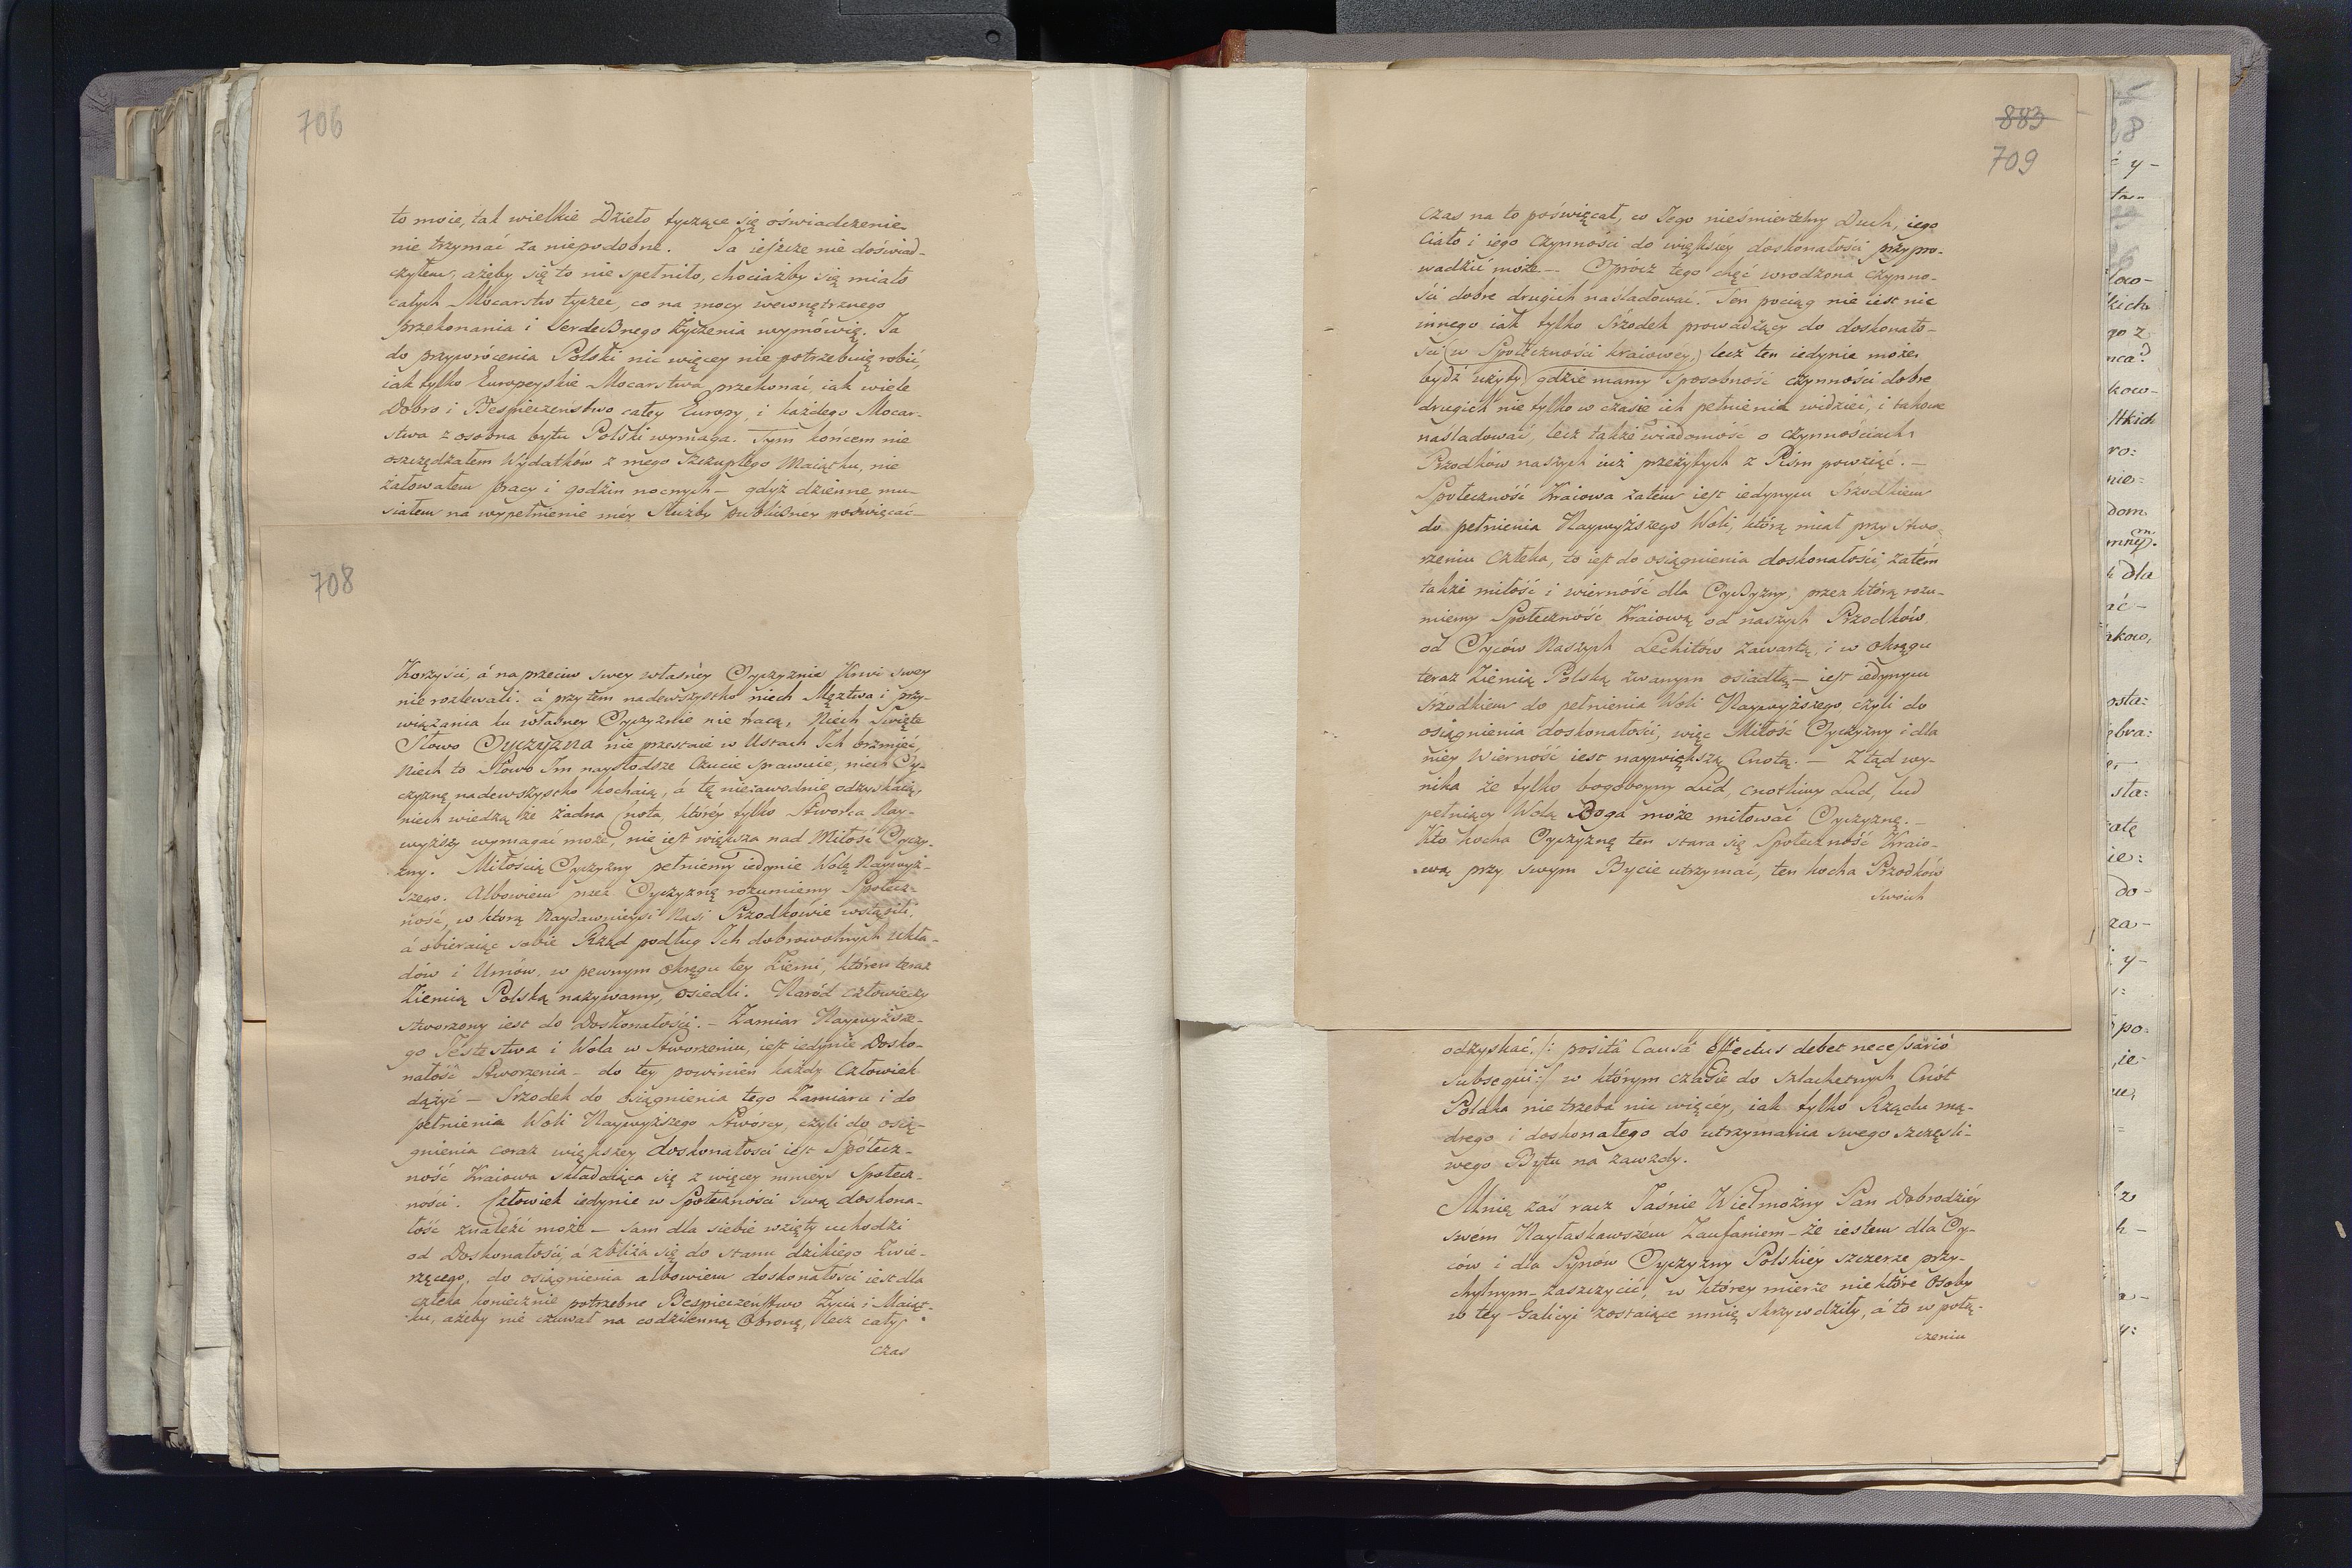 706
to moie, tak wielkie Dzieło tyczące się oświadczenie
nie trzymać za niepodobne. Ja ieszcze nie doświad-
czyłem, ażeby się to nie spełniło, chociażby się miało
całych Mocarstw tyczec, co na mocy wewnętrznego
przekonania i serdecznego życzenia wymówię. Ja
do przywrócenia Polski nic więcey nie potrzebuię robić,
iak tylko Europeyskie Mocarstwa przekonać, iak wiele
Dobro i Bespieczeństwo całey Europy, i każdego Mocar-
stwa z osobna bytu Polski wymaga. Tym końcem nie
oszczędzałem Wydatków z mego szczupłego Maiątku, nie
żałowałem pracy i godzin nocnych – gdyż dzienne mu-
siałem na wypełnienie méy Służby publiczney poświęcać –
708
Korzyści, á naprzeciw swey własnéy Oyczyznie Krwi swey
nie rozlewali: á przytem nadewszystko niech Męztwa i przy-
wiązania ku własney Oyczyznie nie tracą, Niech Święte
Słowo Oyczyzna nie przestaie w Ustach Ich brzmieć,
Niech to Słowo Im naysłodsze Czucie sprawuie, niech Oy-
czyznę nadewszystko kochaią, á tę niezawodnie odzyskaią,
niech wiedzą że żadna Cnota, któréy tylko Stwórca Nay-
wyższy wymagać może, nie iest większa nad Miłość Oyczy-
zny. Miłością Oyczyzny pełniemy iedynie Wolą Naywyż-
szego. Albowiem przez Oyczyznę rozumiemy Społecz-
ność, w którą Naydawnieysi Nasi Przodkowie wstąpili,
á obieraiąc sobie Rząd podług Ich dobrowolnych ukła-
dów i Umów, w pewnym okręgu tey Ziemi, którem teraz
Ziemią Polską nazywamy, osiedli. Naród człowieczy
stworzony iest do Doskonałości. – Zamiar Naywyższe-
go Jestestwa i Wola w Stworzeniu, iest iedynie Dosko-
nałość Stworzenia – do tey powinien każdy Człowiek
dążyć – Śrzodek do osiągnienia tego Zamiaru i do
pełnienia Woli Naywyższego Stwórcy, czyli do osią-
gnienia coraz większey doskonałości iest Społecz-
ność Kraiowa składaiąca się z więcey mnieys Społecz-
ności. Człowiek iedynie w Społeczności swą doskona-
łość znaleźć może – sam dla siebie wzięty uchodzi
od Doskonałości, á zbliża się do stanu dzikiego Zwie-
rzęcego, do osiągnienia albowiem doskonałości iest dla
człeka koniecznie potrzebne Bespieczeństwo Życia i Maiąt-
ku, ażeby nie czuwał na codzienną Obronę, lecz cały
czas
883
709
czas na to poświęcał, co Jego nieśmiertelny Duch, iego
Ciało i iego Czynności do większéy doskonałości przypro-
wadzić może – Oprócz tego chęć wrodzona czynno-
ści dobre drugich naśladować. Ten pociąg nie iest nic
innego iak tylko Śrzodek prowadzący do doskonało-
ści (w Społeczności kraiowéy,) lecz ten iedynie może
bydź użyty gdzie mamy Sposobność czynności dobre
drugich nie tylko w czasie ich pełnienia widzieć, i takowe
naśladować, lecz także wiadomość o czynnościach
Przodków naszych iuż przeżytych z Pism powziąć. –
Społeczność Kraiowa zatem iest iedynym Śrzodkiem
do pełnienia Naywyższego Woli, którą miał przy stwo-
rzeniu Człeka, to iest do osiągnienia doskonałości, zatém
także miłość i wierność dla Oyczyzny, przez którą rozu-
miemy Społeczność Kraiową od naszych Przodków,
od Oyców Naszych Lechitów zawartą, i w okręgu
teraz Ziemią Polską zwanym osiadłą – iest iedynym
śrzodkiem do pełnienia Woli Naywyższego, czyli do
osiągnienia doskonałości, więc Miłość Oyczyzny i dla
niéy Wierność iest naywiększą Cnotą. – Ztąd wy-
nika że tylko bogoboyny Lud, cnotliwy Lud, lud
pełniący Wolą Boga może miłować Oyczyznę. –
Kto kocha Oyczyznę ten stara się Społeczność Kraio-
wą przy swym Bycie utrzymać, ten kocha Przodków
swoich
odzyskać, /: positâ Causâ Effectus debet necessariò
subsequi :/ w którym czasie do szlachetnych Cnót
Polaka nie trzeba nic więcéy, iak tylko Rządu mą-
drego i doskonałego do utrzymania swego szczęśli-
wego Bytu na zawzdy.
Mnię zaś racz Jaśnie Wielmożny Pan Dobrodziéy
swém Nayłaskawszém Zaufaniem – że iestem dla Oy-
ców i dla Synów Oyczyzny Polskiéy szczerze przy-
chylnym – zaszczycić, w któréy mierze niektóre Osoby
w tey Galicyi zostaiące mnię skrzywdziły, á to w połą-
czeniu